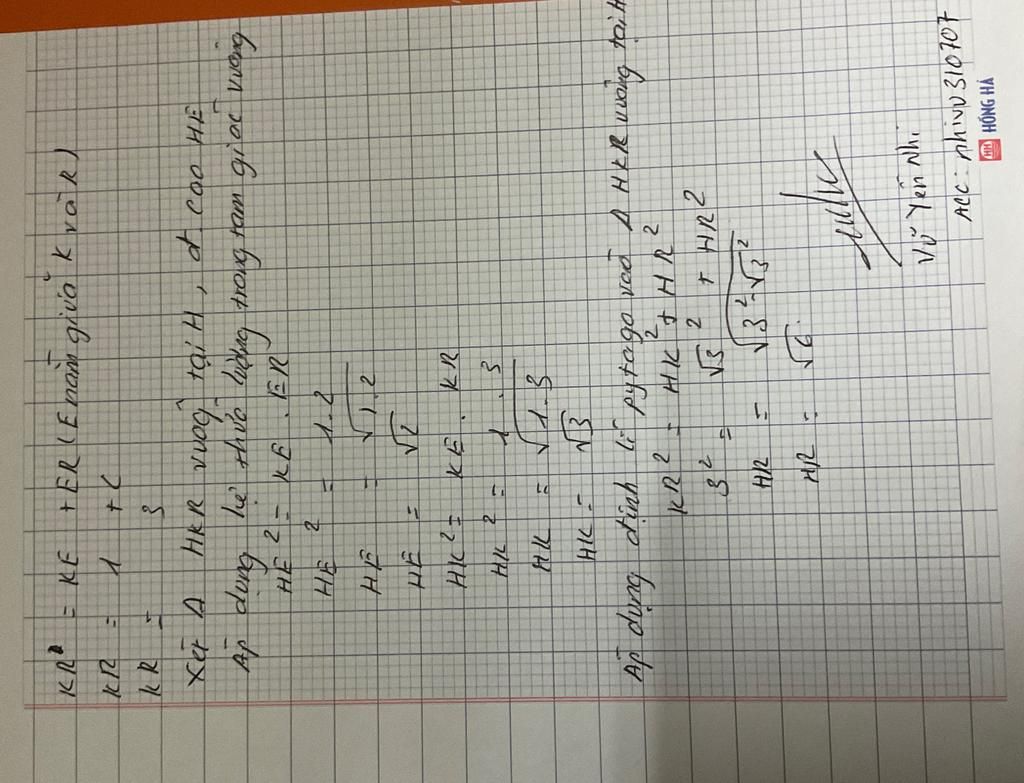 KR = KE + ER (E nằm giữa K và R)
KR = 1 + 2
KR = 3
Xét Δ HKR vuông tại H, đ. cao HE
Áp dụng hệ thức lượng trong tam giác vuông
HE² = KE . ER
HE² = 1.2
HE = √1.2
HE = √2
HK² = KE . KR
HK² = 1 . 3
HK = √1.3
HK = √3
Áp dụng định lí pytago vào Δ HKR vuông tại H
KR² = HK² + HR²
3² = √3² + HR²
HR = √3²-√3²
HR = √6.
Vũ Yến Nhi
ACC: nhivu310707
HH HỒNG HÀ